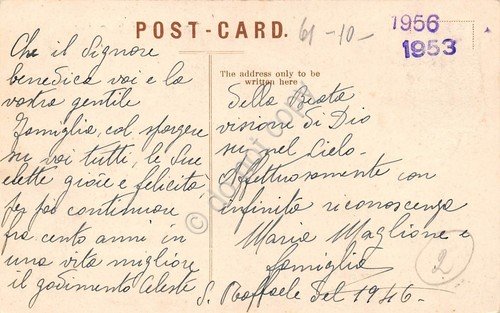 POST-CARD.
61-10-
1956
1953
The address only to be
written here
Che il Signore
benedica voi e la
vostra gentile
famiglia, col spargere
su voi tutti, le sue
elette gioie e felicità
per poi continuare
fra cento anni in
una vita migliore
il godimento Celeste
Della Beata
visione di Dio
su nel Cielo.
Affettuosamente con
infinita riconoscenza
Maria Maglione e
famiglia
S. Raffaele del 1946.
2